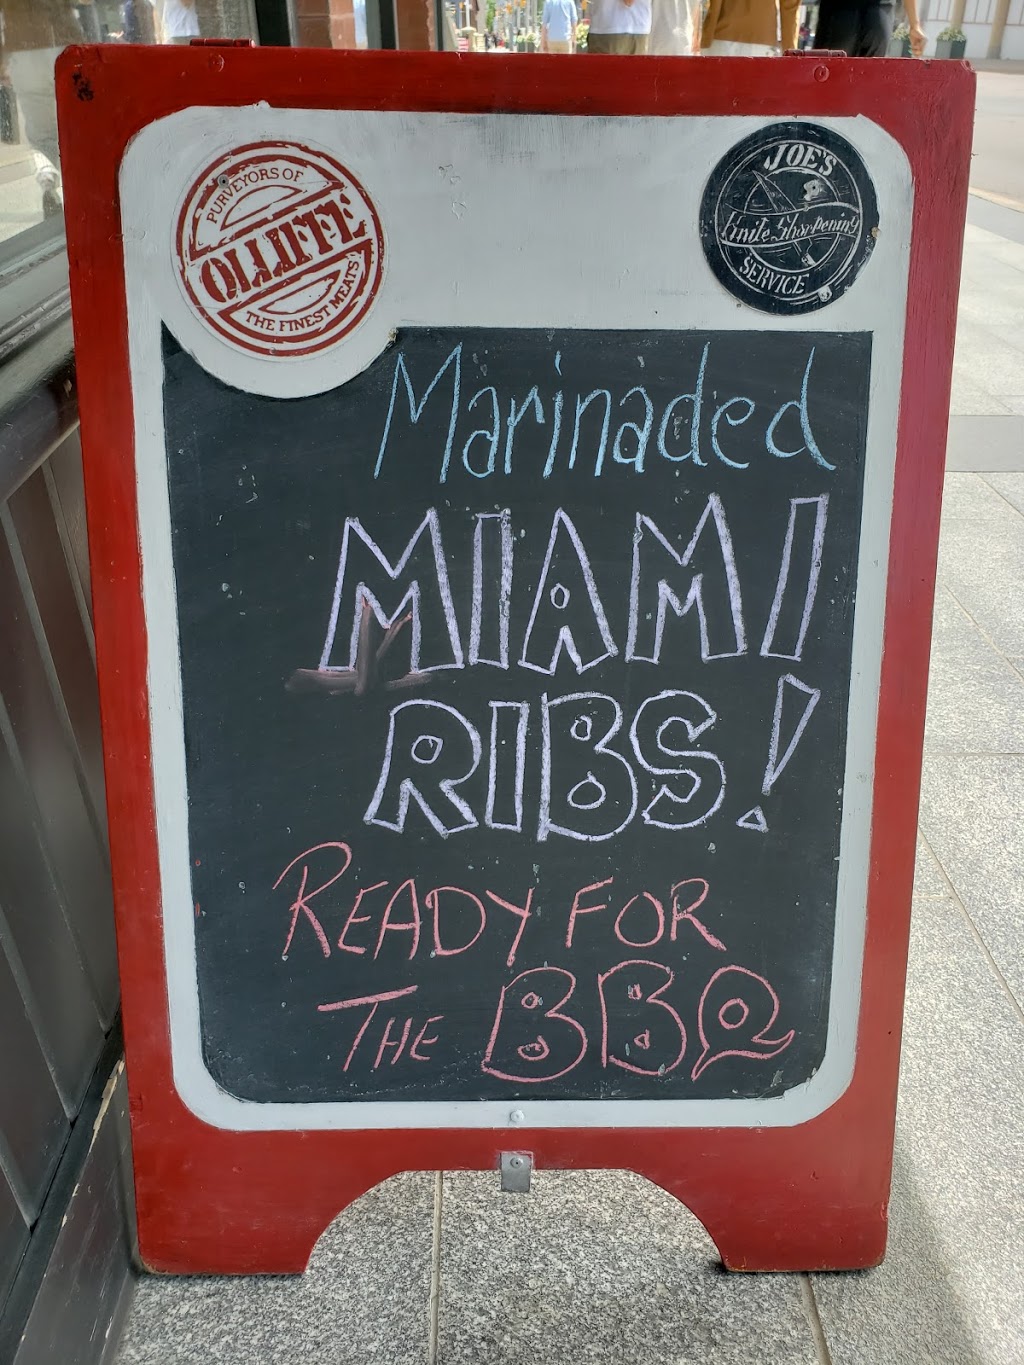 PURVEYORS OF
OLLIFFE
THE FINEST MEATS
JOE'S
Knife Sharpening
SERVICE
Marinaded
MIAMI
RIBS!
READY FOR
THE BBQ